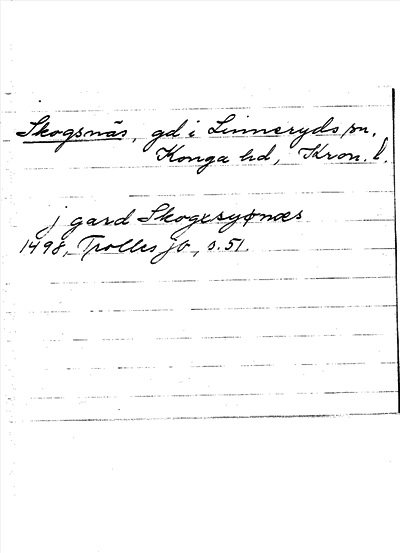 Skogsnäs, gd i Linneryds sn,
Konga hd, Kron. l.
j gard Skogxsyønæs
1498, Trolles jb, s. 51.